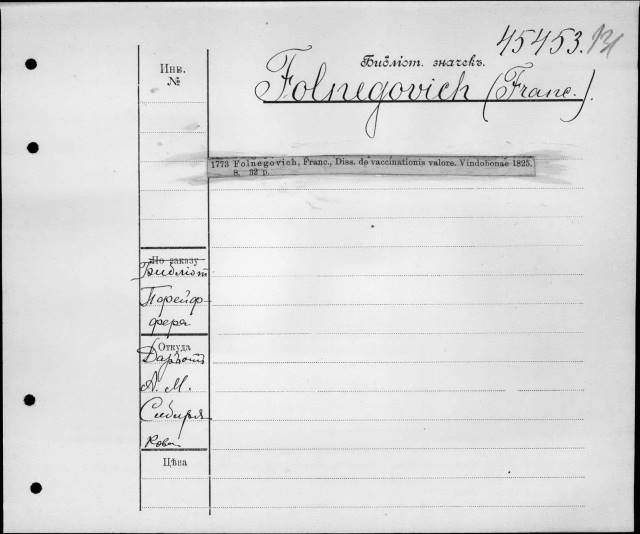 45453.
Библіот. значекъ.
Folnegovich (Franc.).
Инв.
№
1773 Folnegovich, Franc., Diss. de vaccinationis valore. Vindobonae 1825.
8. 32 p.
По заказу
Библіот
Порейф-
фера
Откуда
Даръ отъ
А. М.
Сибиря-
кова
Цѣна